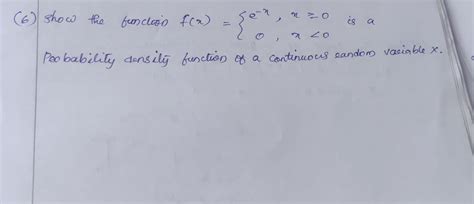 (6) show the function f(x) = { e^-x , x ≥ 0 is a
0 , x < 0
Probability density function of a continuous random variable x.